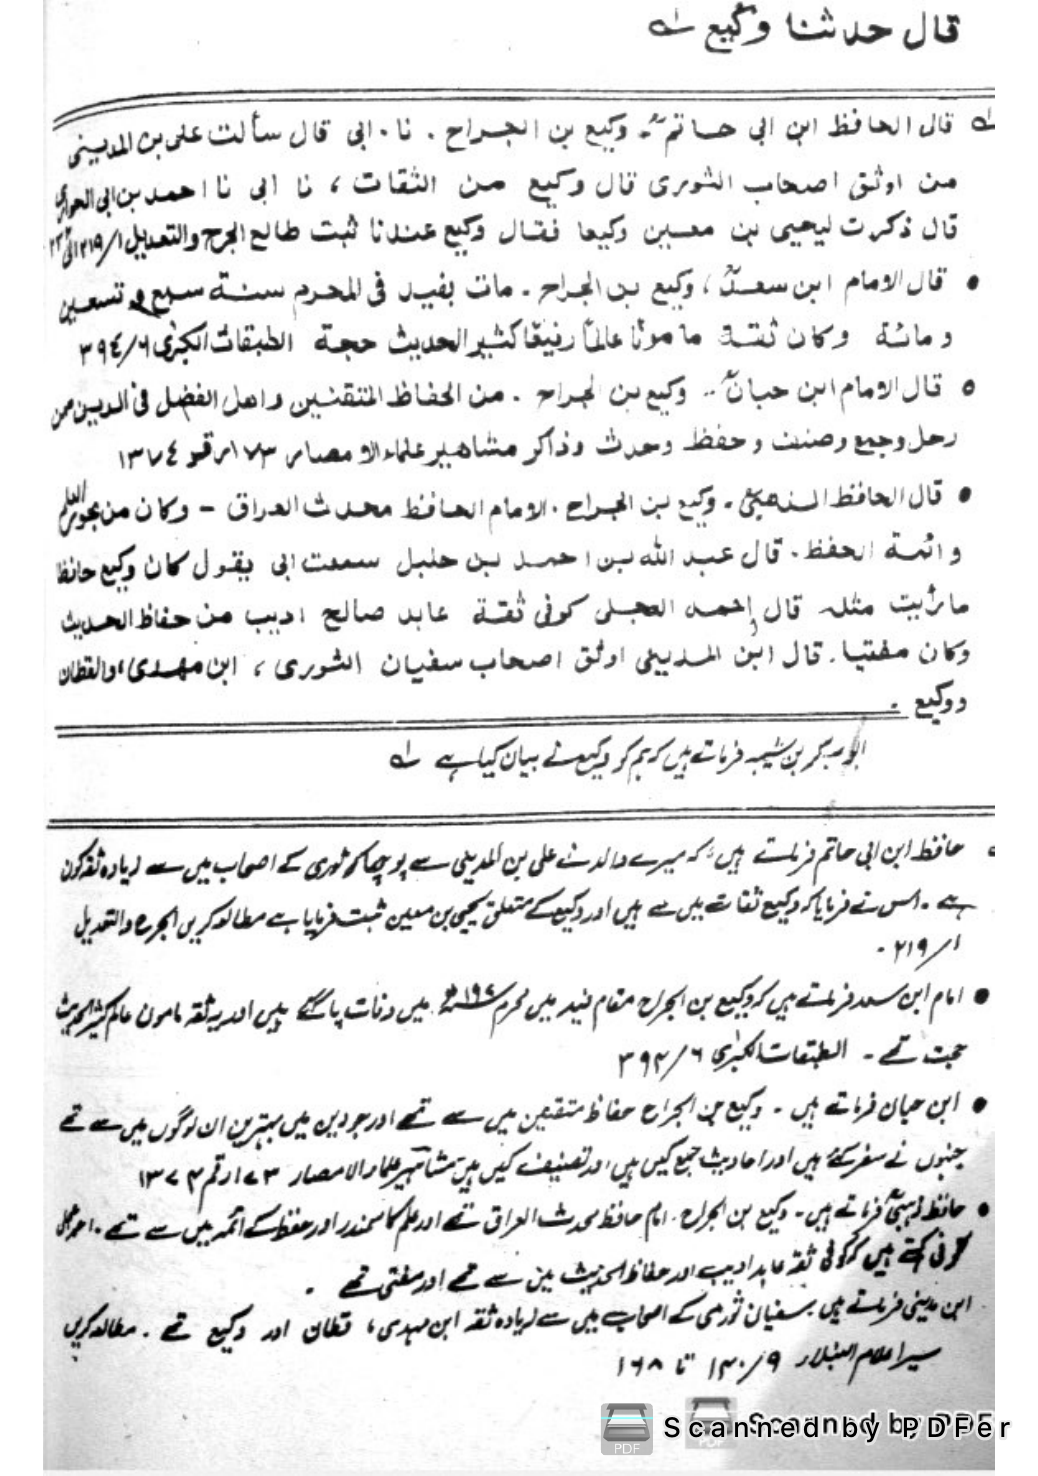 قال حدثنا وكيع لـه
لـه قال الحافظ ابن ابى حاتم وكيع بن الجراح . نا . ابى قال سألت على بن المدينى
من اوثق اصحاب الثورى قال وكيع من الثقات ، نا ابى نا احمد بن ابى الحوارى
قال ذكرت ليحيى بن معين وكيعا فقال وكيع عندنا ثبت طالع الجرح والتعديل ١/٢١٩
● قال الامام ابن سعد ، وكيع بن الجراح . مات بفيد فى المحرم سنة سبع و تسعين
و مائة وكان ثقة مامونا عالما رفيعا كثير الحديث حجة الطبقات الكبرى ٦/٣٩٤
○ قال الامام ابن حبان .. وكيع بن الجراح . من الحفاظ المتقنين واهل الفضل فى الدين ممن
رحل وجمع وصنف وحفظ وحدث وذاكر مشاهير علماء الامصار ١٧٣ رقم ١٣٧٤
● قال الحافظ الذهبى . وكيع بن الجراح . الامام الحافظ محدث العراق – وكان من بحور العلم
وائمة الحفظ . قال عبد الله بن احمد بن حنبل سمعت ابى يقول كان وكيع حافظا
ما رأيت مثله قال احمد العجلى كوفى ثقة عابد صالح اديب من حفاظ الحديث
وكان مفتيا . قال ابن المدينى اوثق اصحاب سفيان الثورى ، ابن مهدى ، والقطان
ووكيع .
ابوبکر بن شیبہ فرماتے ہیں کہ ہم کو وکیع نے بیان کیا ہے لـه
حافظ ابن ابی حاتم فرماتے ہیں کہ میرے والد نے علی بن المدینی سے پوچھا کہ ثوری کے اصحاب میں سے زیادہ ثقہ کون
ہے . اس نے فرمایا کہ وکیع ثقات میں سے ہیں اور وکیع کے متعلق یحیی بن معین ثبت فرمایا ہے مطالعہ کریں الجرح والتعدیل
۱/۲۱۹ .
● امام ابن سعد فرماتے ہیں کہ وکیع بن الجراح مقام فید میں محرم ۱۹۷ھ میں وفات پا گئے ہیں اور یہ ثقہ مامون عالم کثیر الحدیث
حجت تھے . الطبقات الکبری ۶/۳۹۴
● ابن حبان فرماتے ہیں . وکیع بن الجراح حفاظ متقنین میں سے تھے اور جو دین میں بہترین ان لوگوں میں سے تھے
جنہوں نے سفر کئے ہیں اور احادیث جمع کیں ہیں اور تصنیف کیں ہیں مشاہیر علماء الامصار ۱۷۳ رقم ۱۳۷۴
● حافظ ذہبی فرماتے ہیں . وکیع بن الجراح . امام حافظ محدث العراق تھے اور علم کا سمندر اور حفظ کے ائمہ میں سے تھے . احمد عجلی
کوفی کہتے ہیں کہ کوفی ثقہ عابد ادیب اور حفاظ الحدیث میں سے تھے اور مفتی تھے .
ابن مدینی فرماتے ہیں سفیان ثوری کے اصحاب میں سے زیادہ ثقہ ابن مہدی ، قطان اور وکیع تھے . مطالعہ کریں
سیر اعلام النبلاء ۹/۱۴۰ تا ۱۶۸
Scanned by PDFer
Scanned by PDF